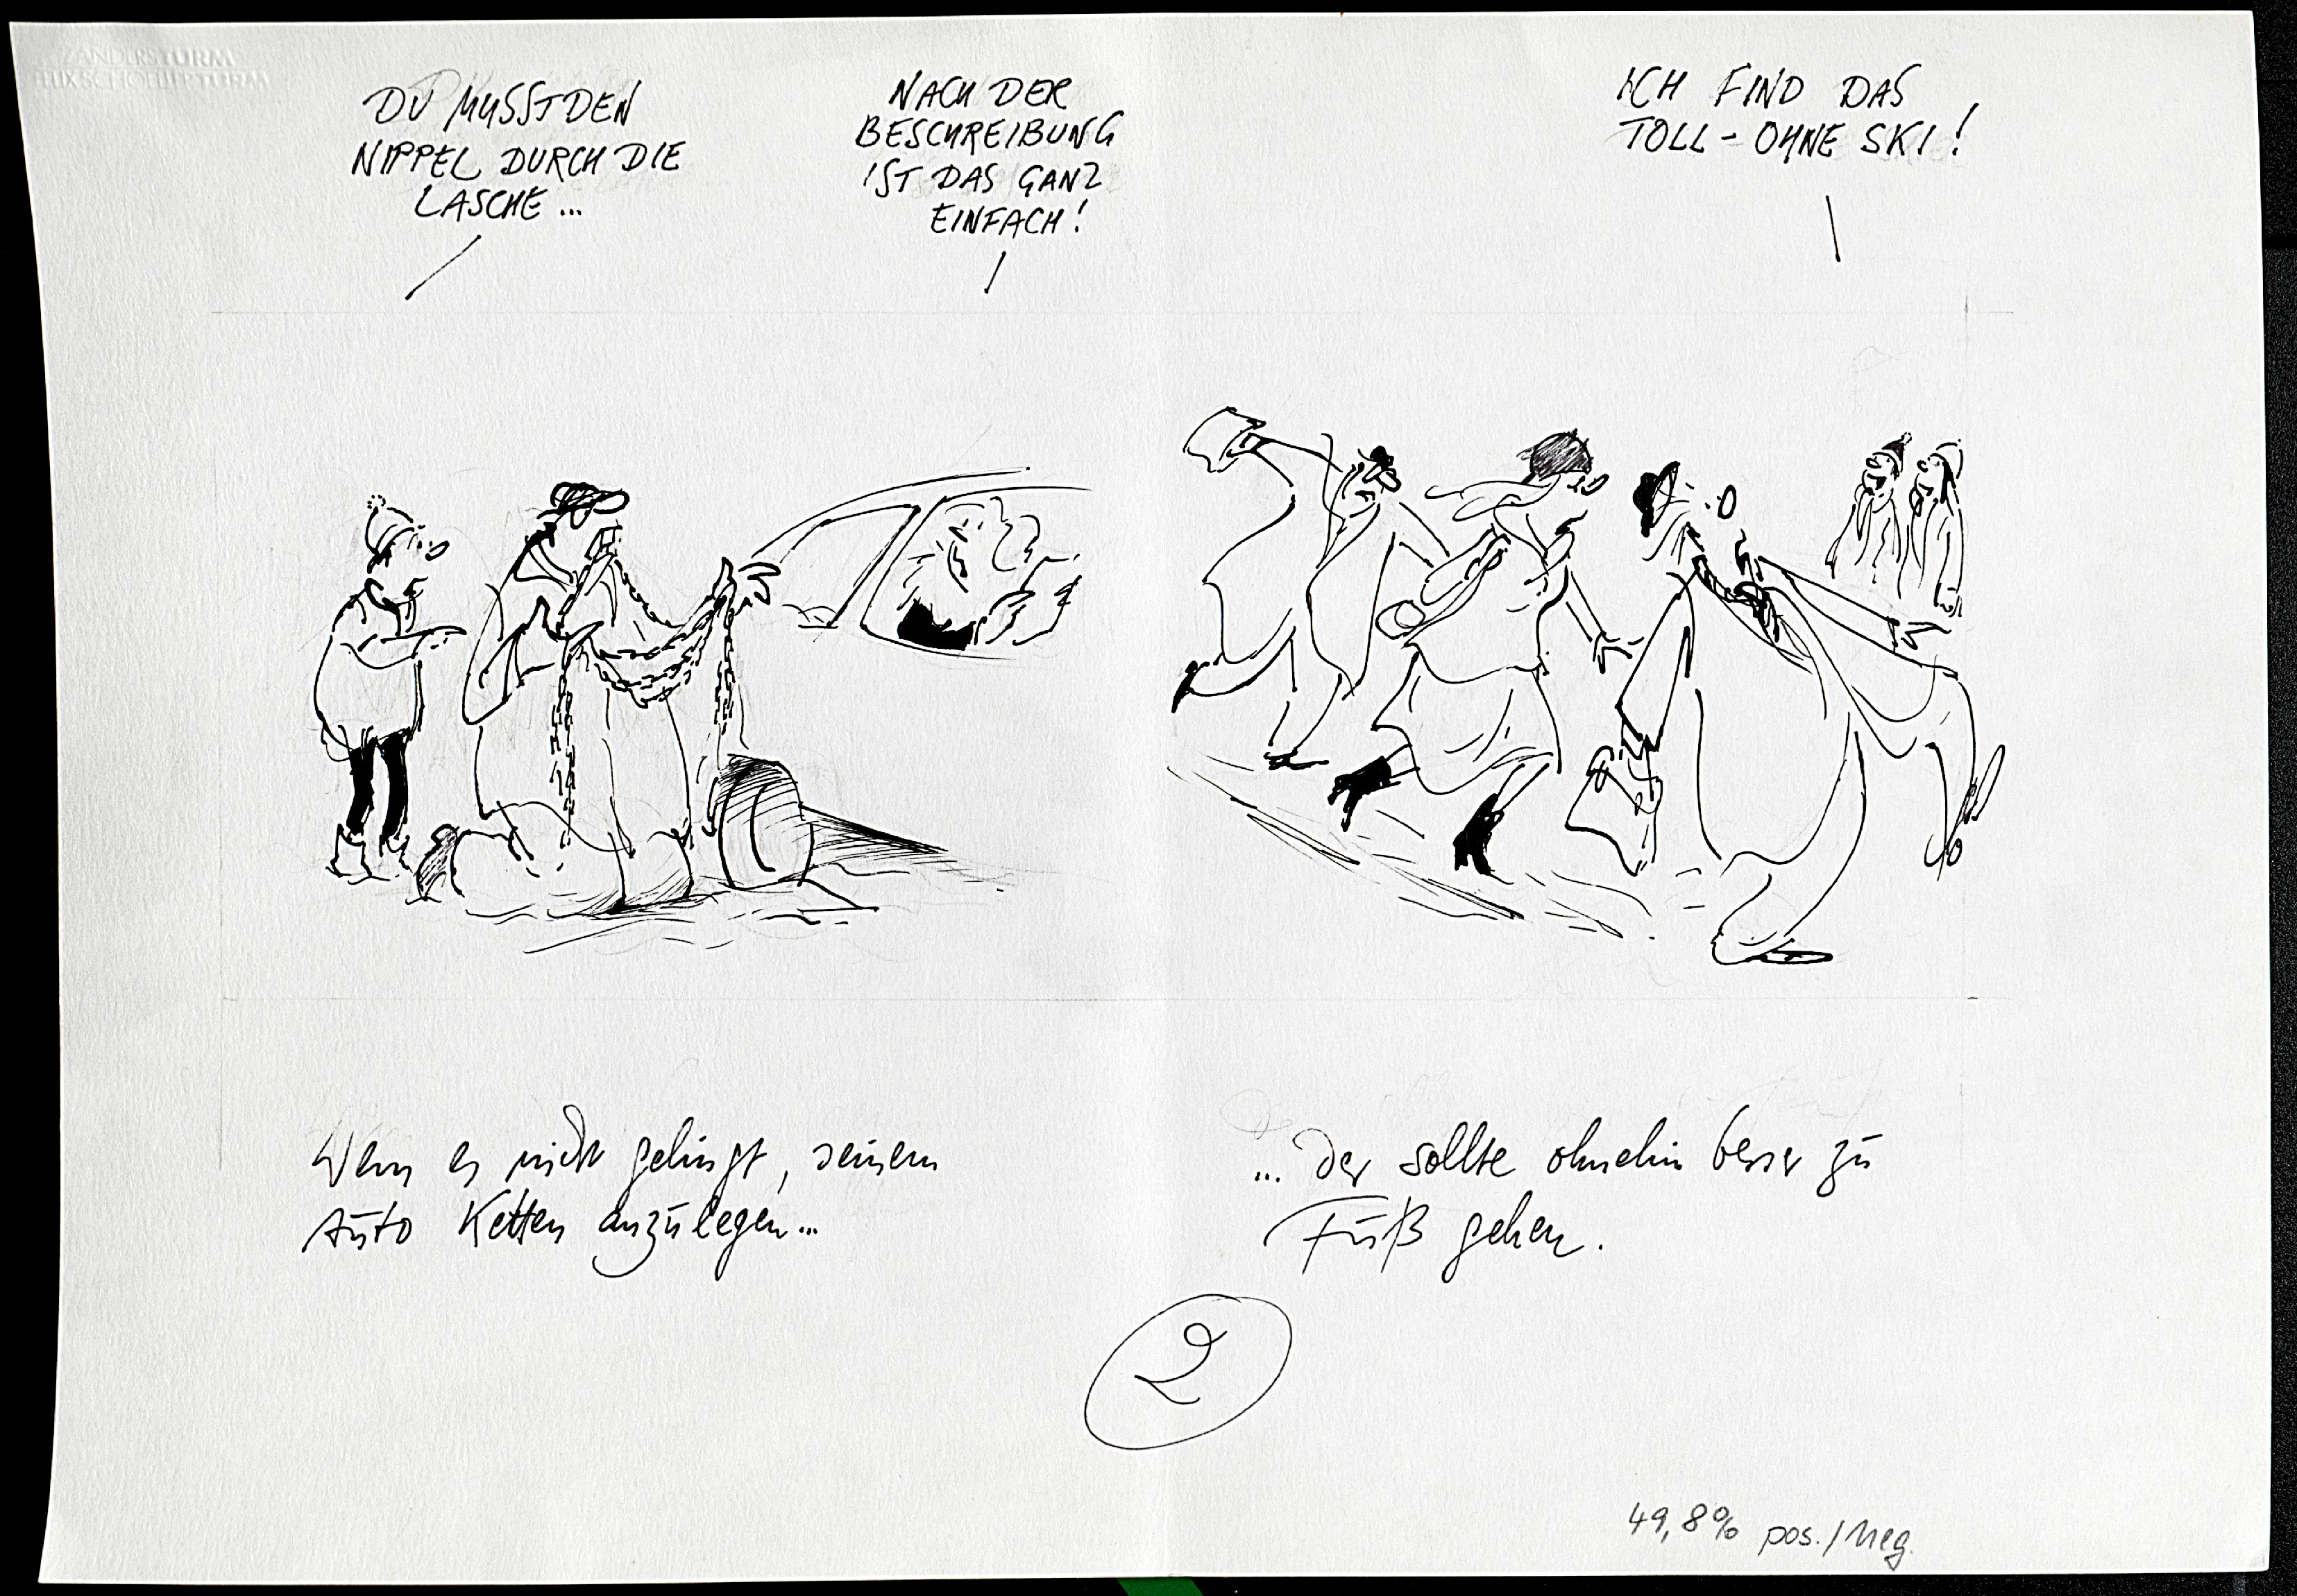 ZANDERS TURM
DU MUSST DEN
NIPPEL DURCH DIE
LASCHE ...
NACH DER
BESCHREIBUNG
IST DAS GANZ
EINFACH!
ICH FIND DAS
TOLL - OHNE SKI!
Wem es nicht gelingt, seinem
Auto Ketten anzulegen...
... der sollte ohnehin besser zu
Fuß gehen.
2
49,8% pos./Neg.